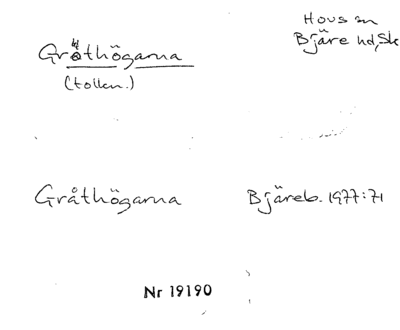 Hovs sn
Bjäre hd, Sk
Gråthögarna
(tolkn.)
Gråthögarna Bjäreb. 1977:71
Nr 19190